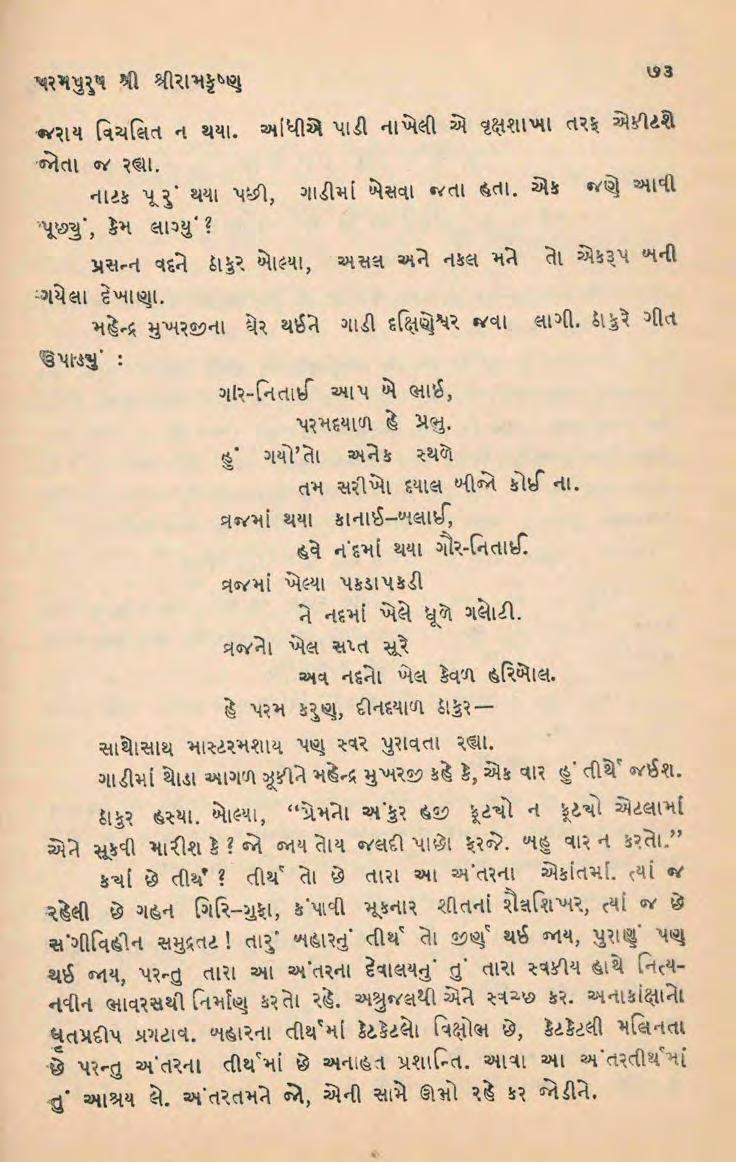 પરમપુરુષ શ્રી શ્રીરામકૃષ્ણ ૭૩
જરાય વિચલિત ન થયા. આંધીએ પાડી નાખેલી એ વૃક્ષશાખા તરફ એકીટશે
જોતા જ રહ્યા.
નાટક પૂરું થયા પછી, ગાડીમાં બેસવા જતા હતા. એક જણે આવી
પૂછ્યું, કેમ લાગ્યું?
પ્રસન્ન વદને ઠાકુર બોલ્યા, અસલ અને નકલ મને તો એકરૂપ બની
ગયેલા દેખાણા.
મહેન્દ્ર મુખરજીના ઘેર થઈને ગાડી દક્ષિણેશ્વર જવા લાગી. ઠાકુરે ગીત
ઉપાડ્યું :
ગૌર-નિતાઈ આપ બે ભાઈ,
પરમદયાળ હે પ્રભુ.
હું ગયો'તો અનેક સ્થળે
તમ સરીખો દયાલ બીજો કોઈ ના.
વ્રજમાં થયા કાનાઈ–બલાઈ,
હવે નંદમાં થયા ગૌર-નિતાઈ.
વ્રજમાં ખેલ્યા પકડાપકડી
ને નદમાં ખેલે ધૂળે ગલોટી.
વ્રજનો ખેલ સપ્ત સૂરે
અવ નદનો ખેલ કેવળ હરિબોલ.
હે પરમ કરુણ, દીનદયાળ ઠાકુર—
સાથોસાથ માસ્ટરમશાય પણ સ્વર પુરાવતા રહ્યા.
ગાડીમાં થોડા આગળ ઝૂકીને મહેન્દ્ર મુખરજી કહે કે, એક વાર હું તીર્થે જઈશ.
ઠાકુર હસ્યા. બોલ્યા, “પ્રેમનો અંકુર હજી ફૂટચો ન ફૂટચો એટલામાં
એને સૂકવી મારીશ કે? જો જાય તોય જલદી પાછો ફરજે. બહુ વાર ન કરતો.”
કયાં છે તીર્થ? તીર્થ તો છે તારા આ અંતરના એકાંતમાં. ત્યાં જ
રહેલી છે ગહન ગિરિ–ગુફા, કંપાવી મૂકનાર શીતનાં શૈલશિખર, ત્યાં જ છે
સંગીવિહીન સમુદ્રતટ! તારું બહારનું તીર્થ તો જીર્ણ થઈ જાય, પુરાણું પણ
થઈ જાય, પરન્તુ તારા આ અંતરના દેવાલયનું તું તારા સ્વકીય હાથે નિત્ય-
નવીન ભાવરસથી નિર્માણ કરતો રહે. અશ્રુજલથી એને સ્વચ્છ કર. અનાકાંક્ષાનો
ધૃતપ્રદીપ પ્રગટાવ. બહારના તીર્થમાં કેટકેટલો વિક્ષોભ છે, કેટકેટલી મલિનતા
છે પરન્તુ અંતરના તીર્થમાં છે અનાહત પ્રશાન્તિ. આવા આ અંતરતીર્થમાં
તું આશ્રય લે. અંતરતમને જો, એની સામે ઊભો રહે કર જોડીને.